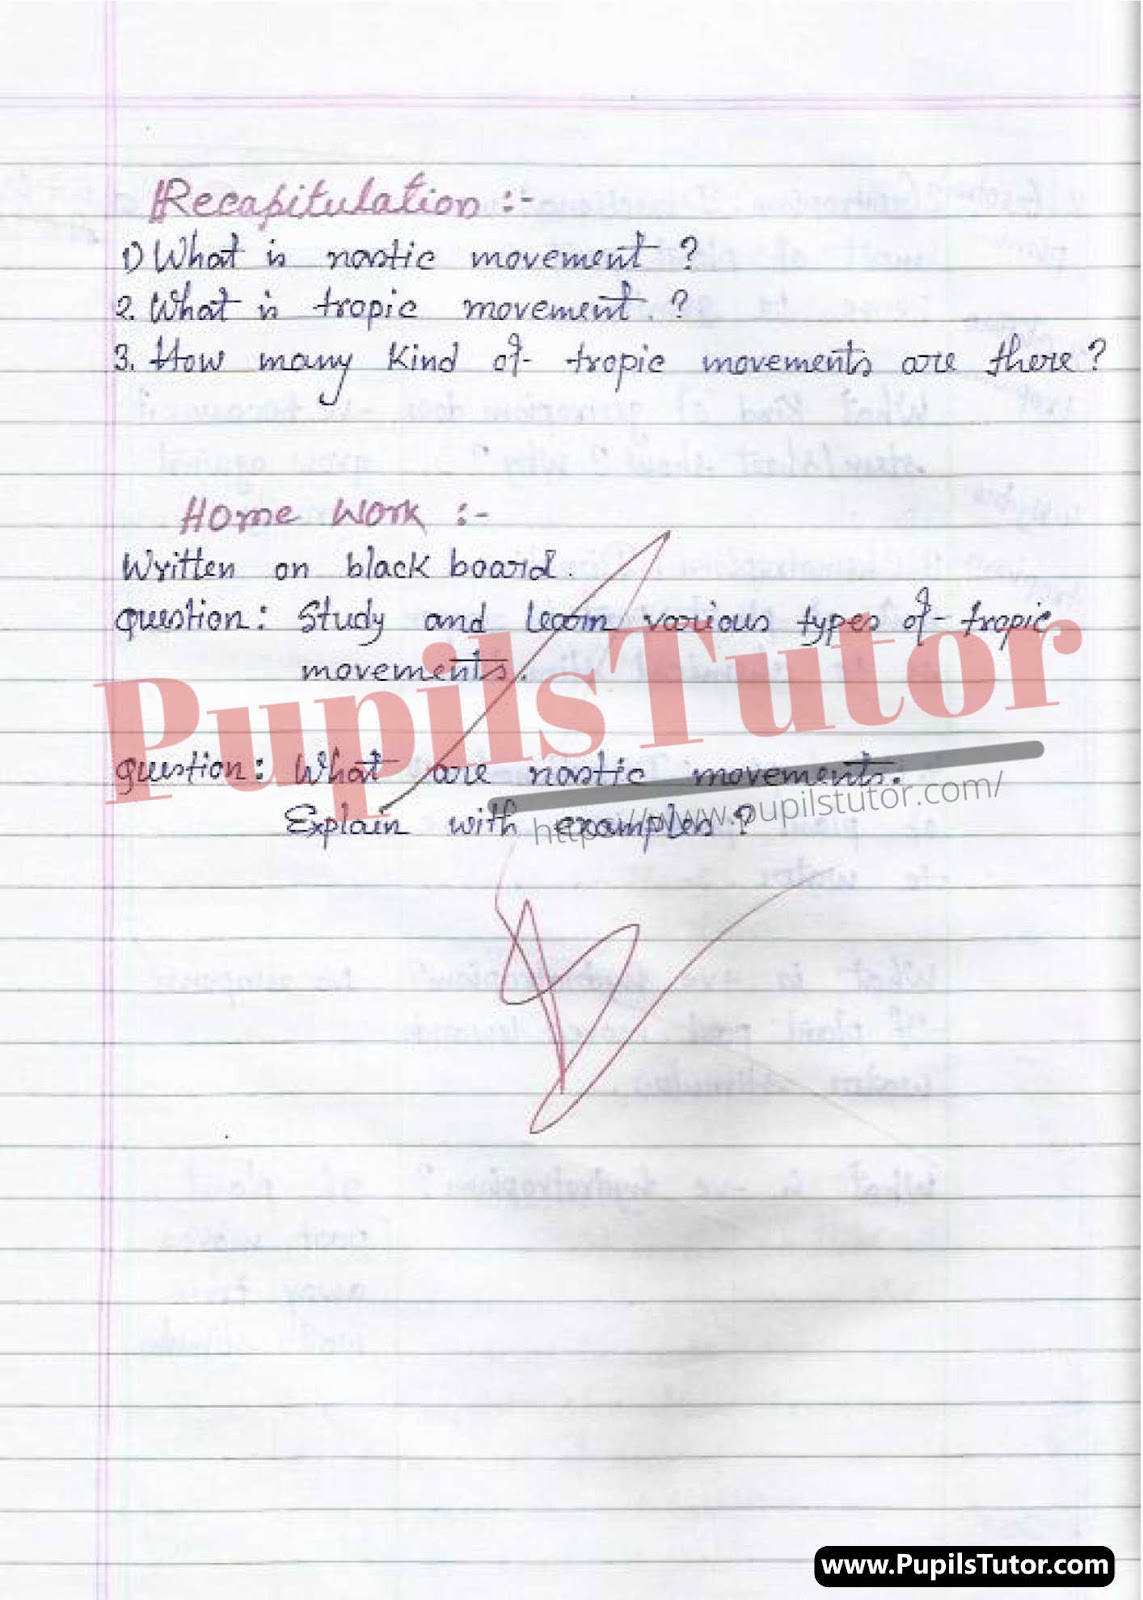 Recapitulation :-
1) What is nastic movement ?
2. What is tropic movement. ?
3. How many kind of tropic movements are there ?
Home Work :-
Written on black board.
Question : Study and learn various types of tropic
movements.
PupilsTutor
Question : What are nastic movements.
https://www.pupilstutor.com/
Explain with examples ?
www.PupilsTutor.com